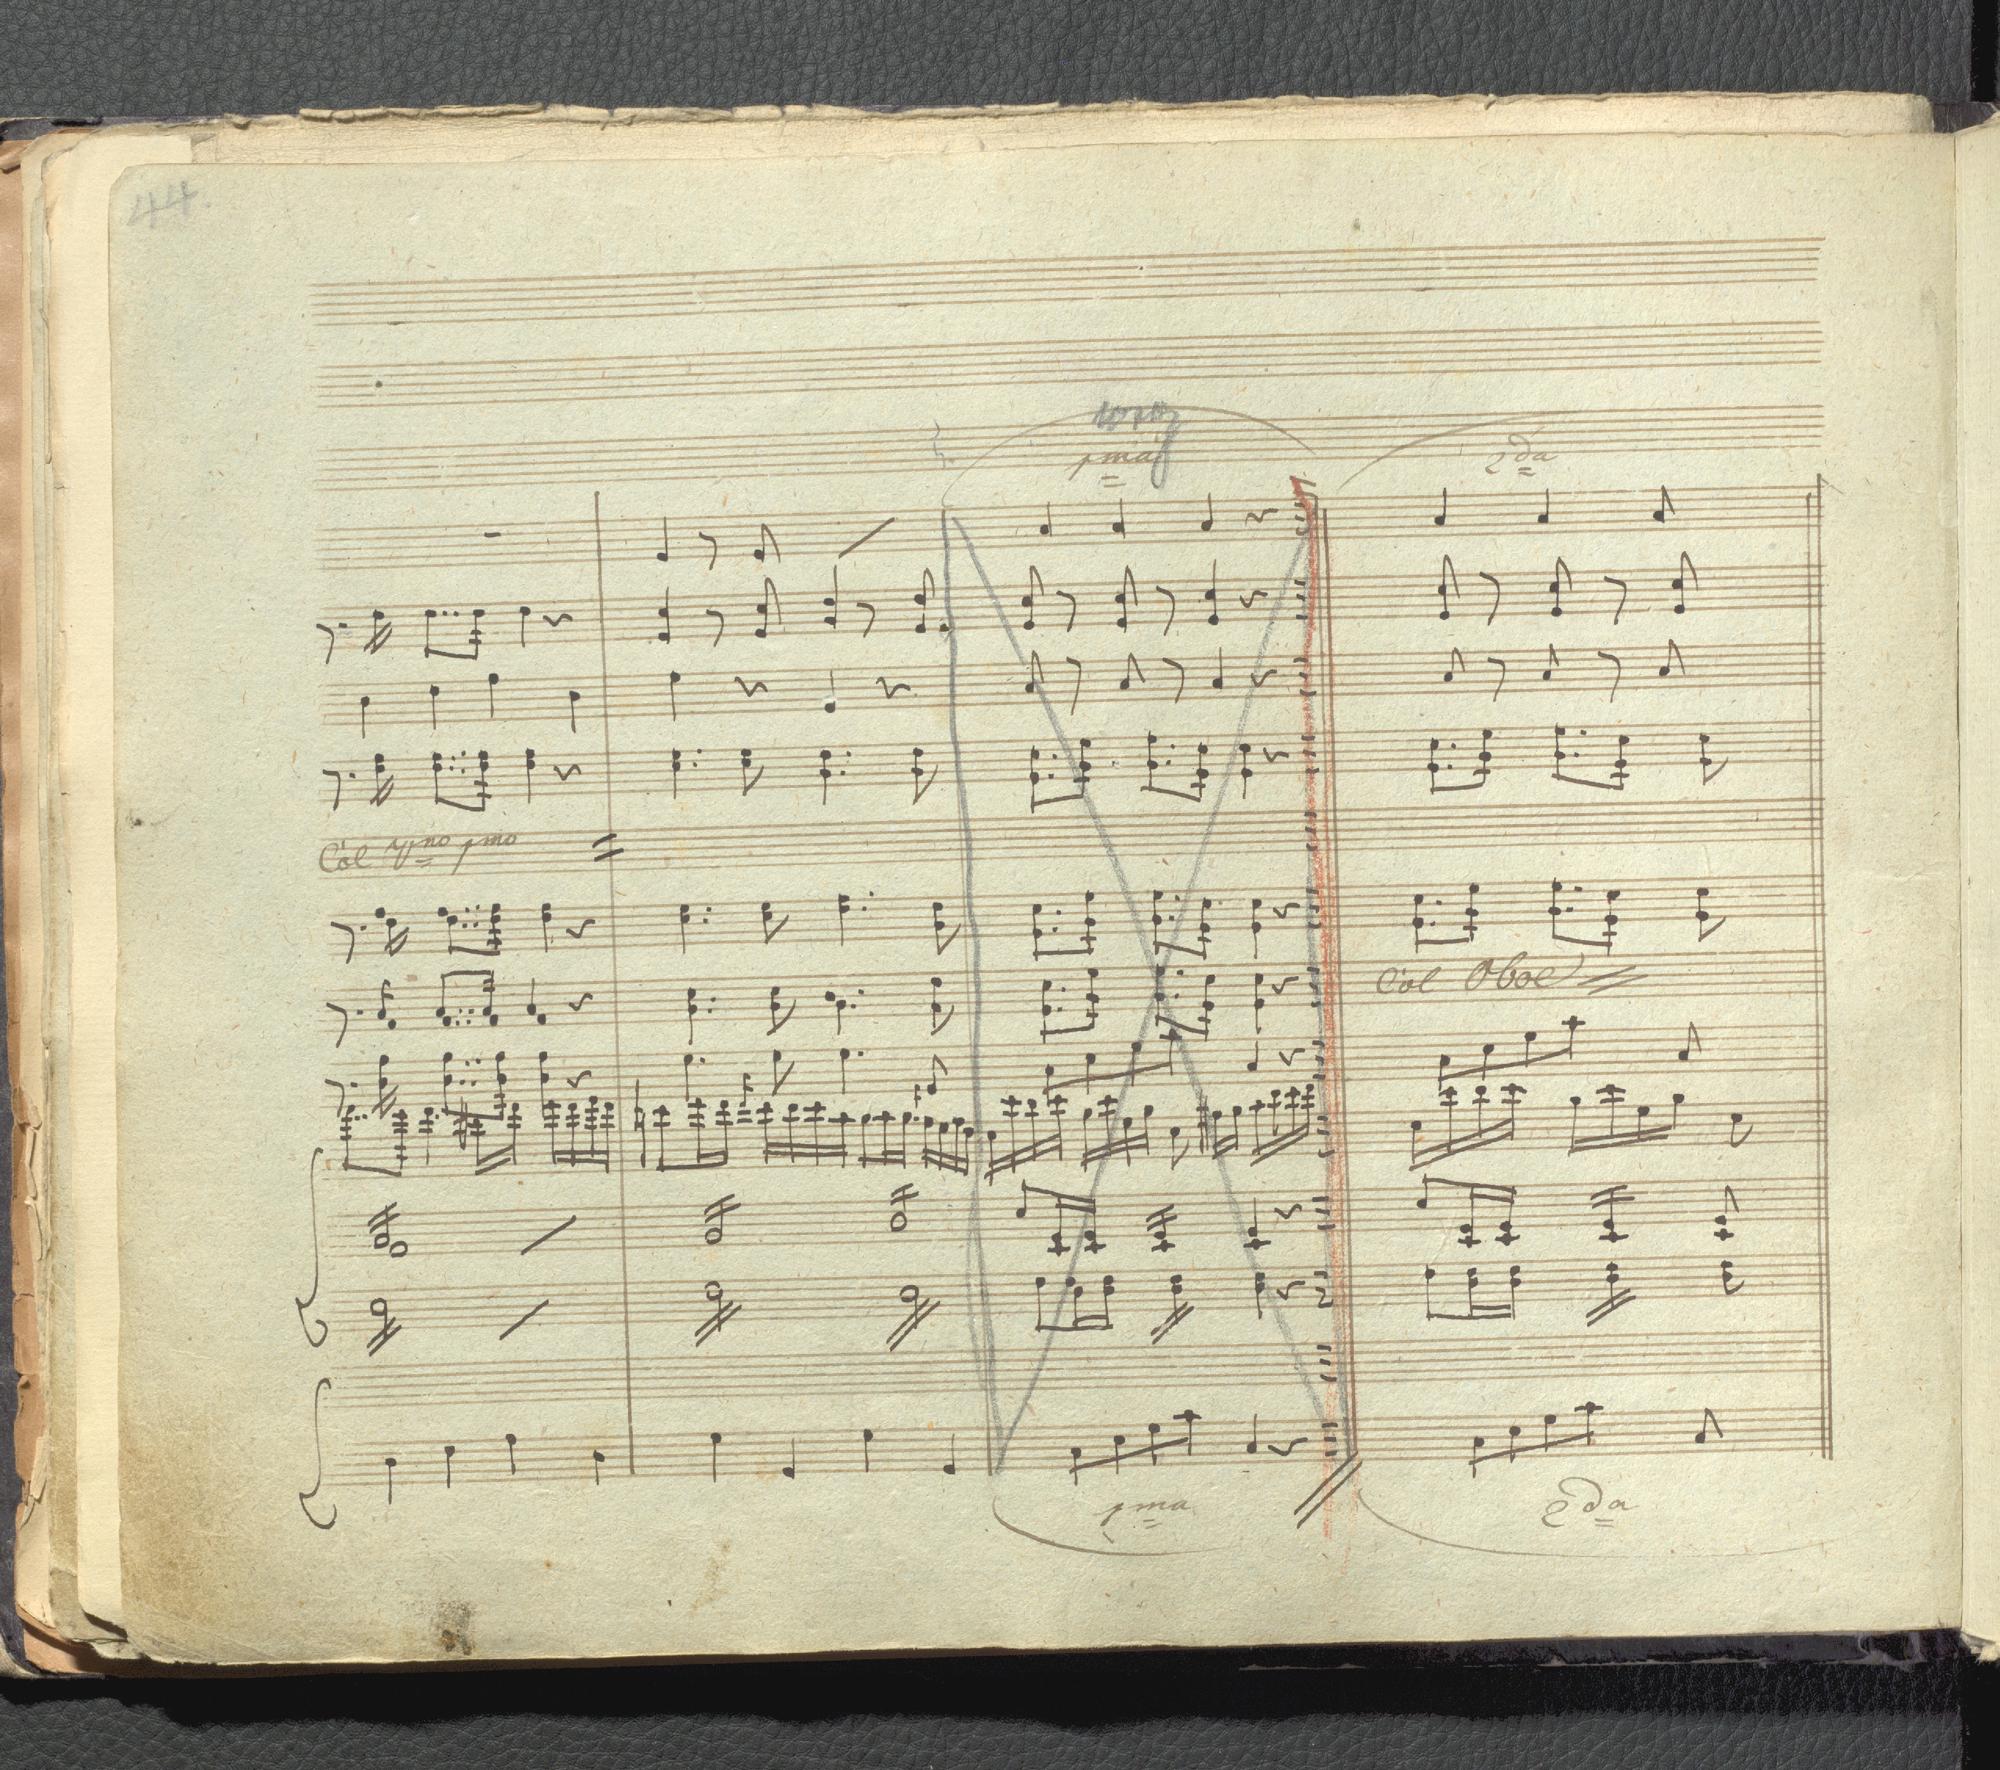 44.
pma
2da
Col vno pmo
Col Oboe
pma
2da